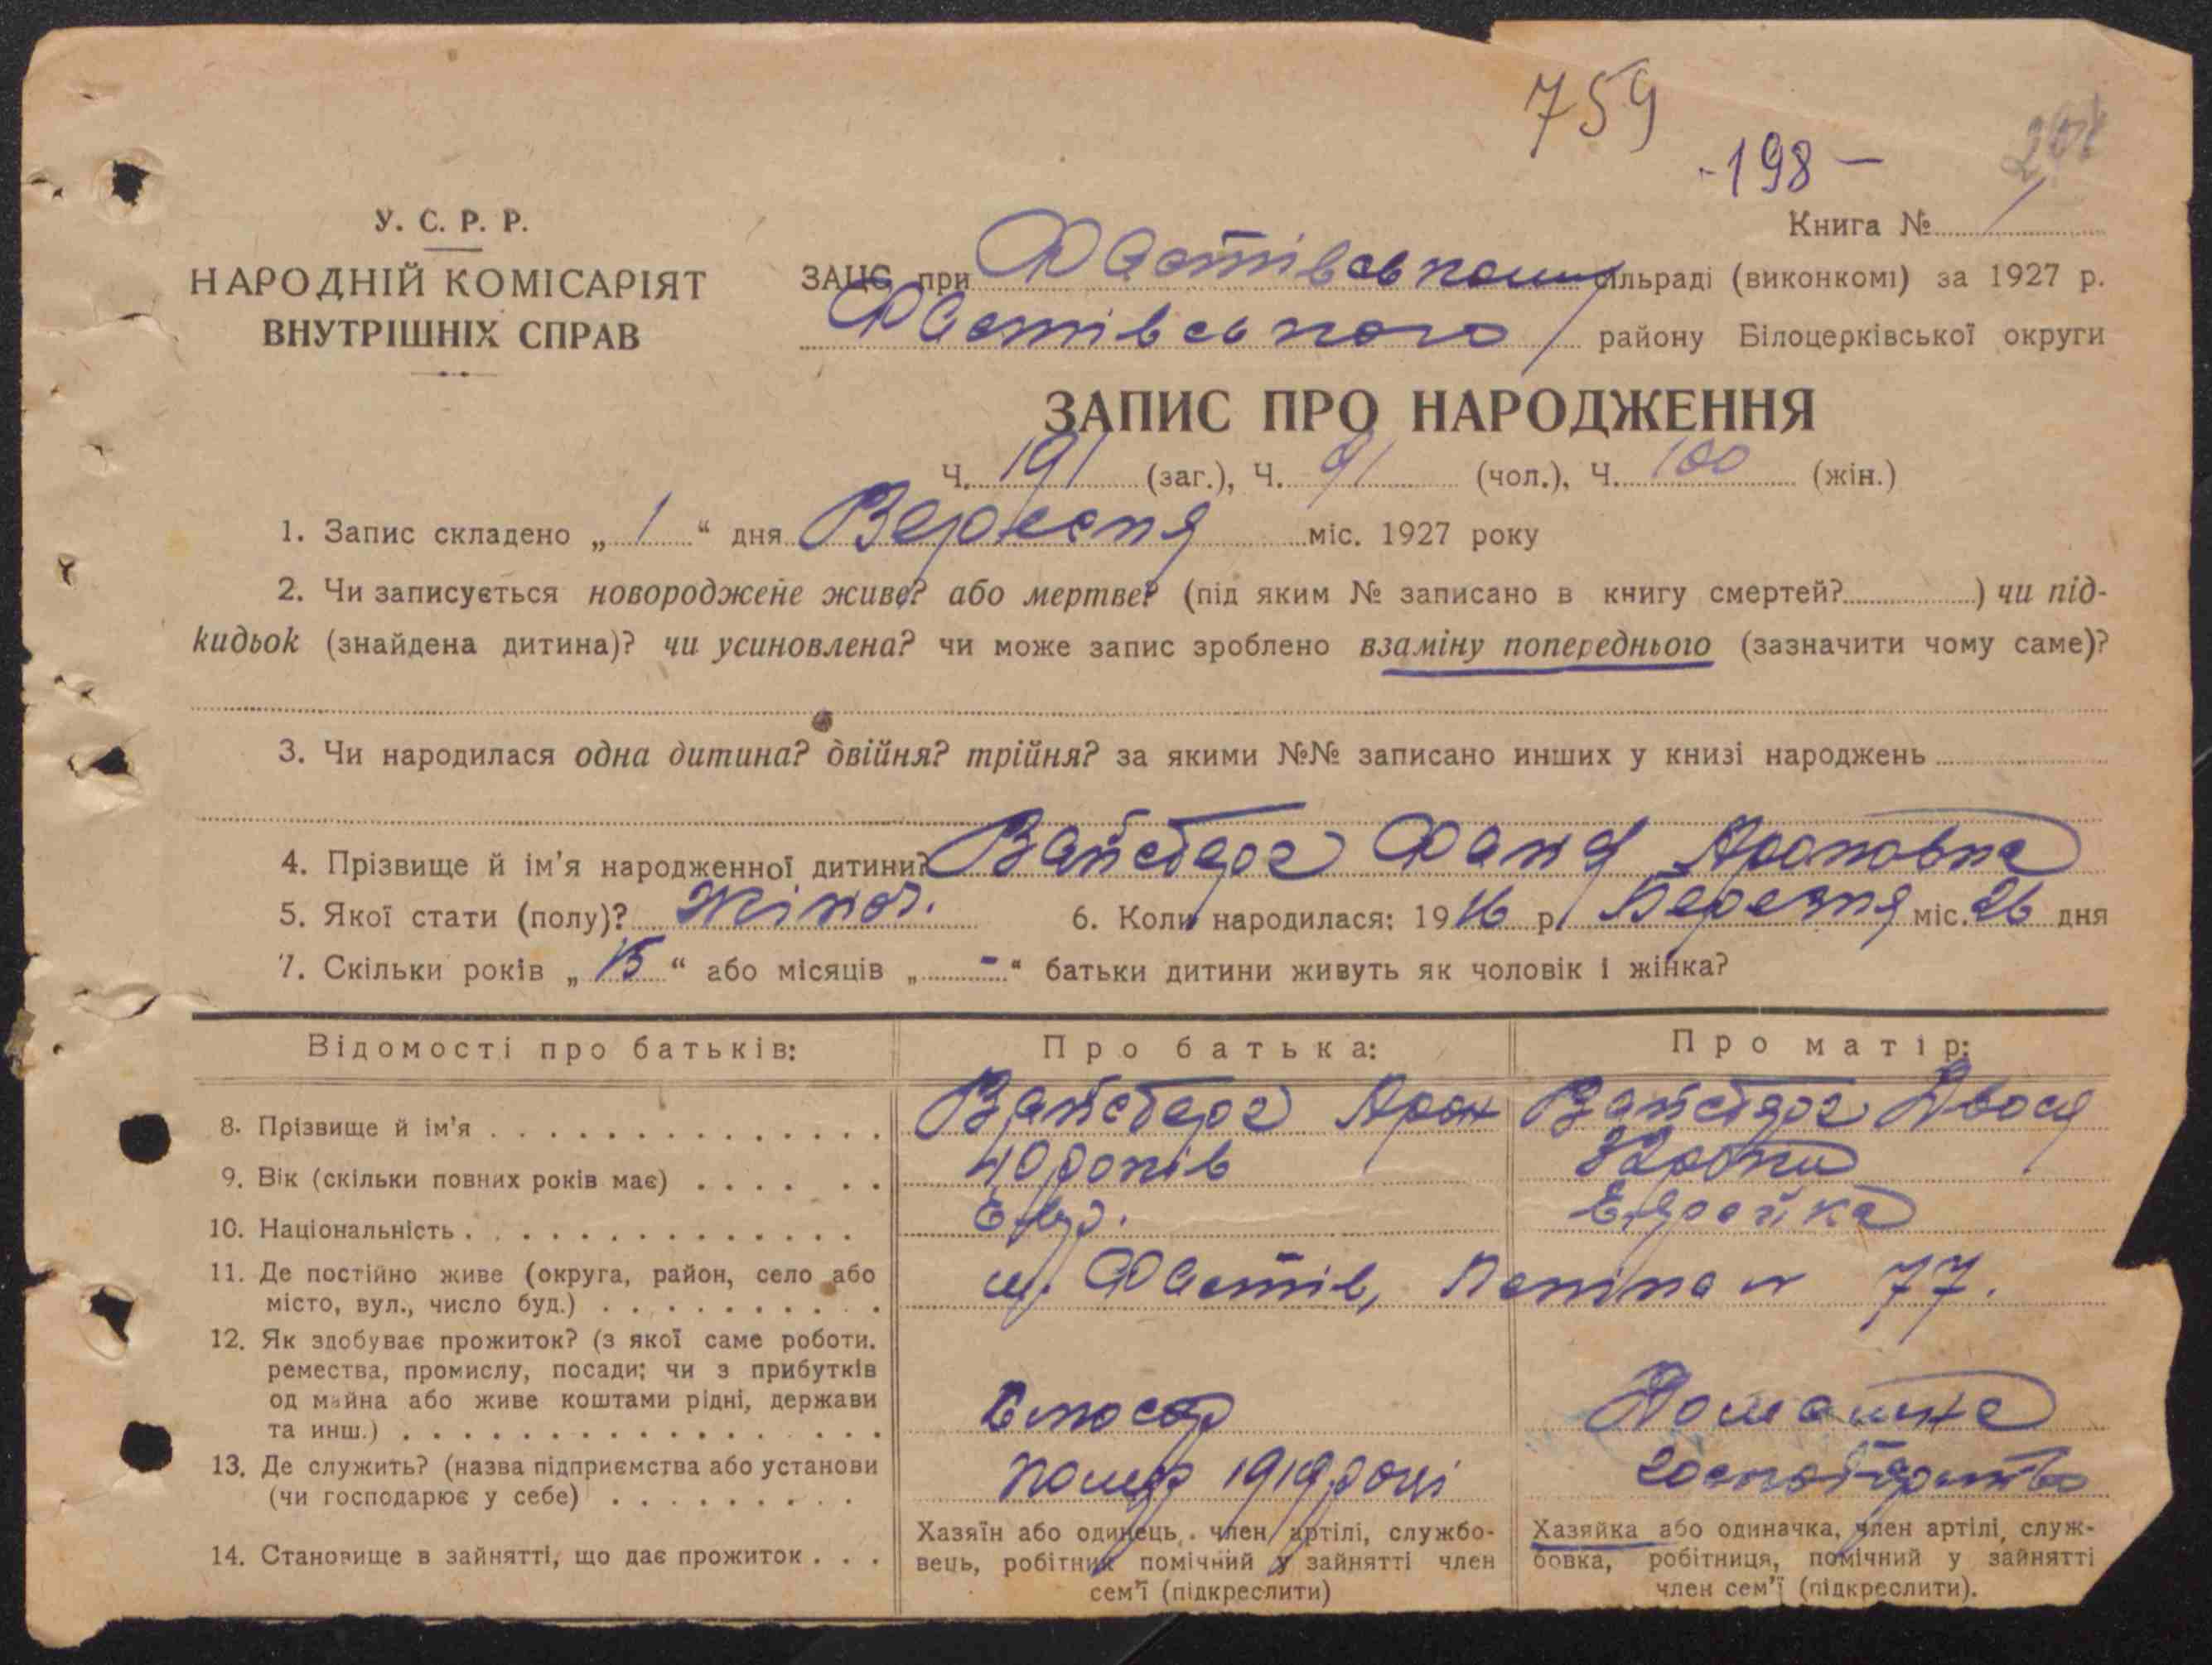 759
-198-
У. С. Р. Р.
НАРОДНІЙ КОМІСАРІЯТ
ВНУТРІШНІХ СПРАВ
Книга № 1
ЗАЦС при Фастівському сільраді (виконкомі) за 1927 р.
Фастівського району Білоцерківської округи
ЗАПИС ПРО НАРОДЖЕННЯ
Ч. 191 (заг.), Ч. 91 (чол.), Ч. 100 (жін.)
1. Запис складено „ 1 “ дня Вересня міс. 1927 року
2. Чи записується новороджене живе? або мертве? (під яким № записано в книгу смертей? ) чи під-
кидьок (знайдена дитина)? чи усиновлена? чи може запис зроблено взаміну попереднього (зазначити чому саме)?
3. Чи народилася одна дитина? двійня? трійня? за якими №№ записано инших у книзі народжень
4. Прізвище й ім’я народженної дитини? Вайсберг Фаня Ароновна
5. Якої стати (полу)? жіноч. 6. Коли народилася: 1916 р. Березня міс. 26 дня
7. Скільки років „ 15 “ або місяців „ - “ батьки дитини живуть як чоловік і жінка?
Відомості про батьків: Про батька: Про матір:
8. Прізвище й ім’я Вайсберг Арон Вайсберг Двося
9. Вік (скільки повних років має) 40 років 32 роки
10. Національність Євр. Єврейка
11. Де постійно живе (округа, район, село або
місто, вул., число буд.) м. Фастів, Леніна 77.
12. Як здобуває прожиток? (з якої саме роботи.
ремества, промислу, посади; чи з прибутків
од майна або живе коштами рідні, держави
та инш.) Домашнє
13. Де служить? (назва підприємства або установи
(чи господарює у себе) помер 1919 році господарство
14. Становище в зайнятті, що дає прожиток
Хазяїн або одинець, член артілі, службо-
вець, робітник помічний у зайнятті член
сем’ї (підкреслити)
Хазяйка або одиначка, член артілі, служ-
бовка, робітниця, помічний у зайнятті
член сем’ї (підкреслити).